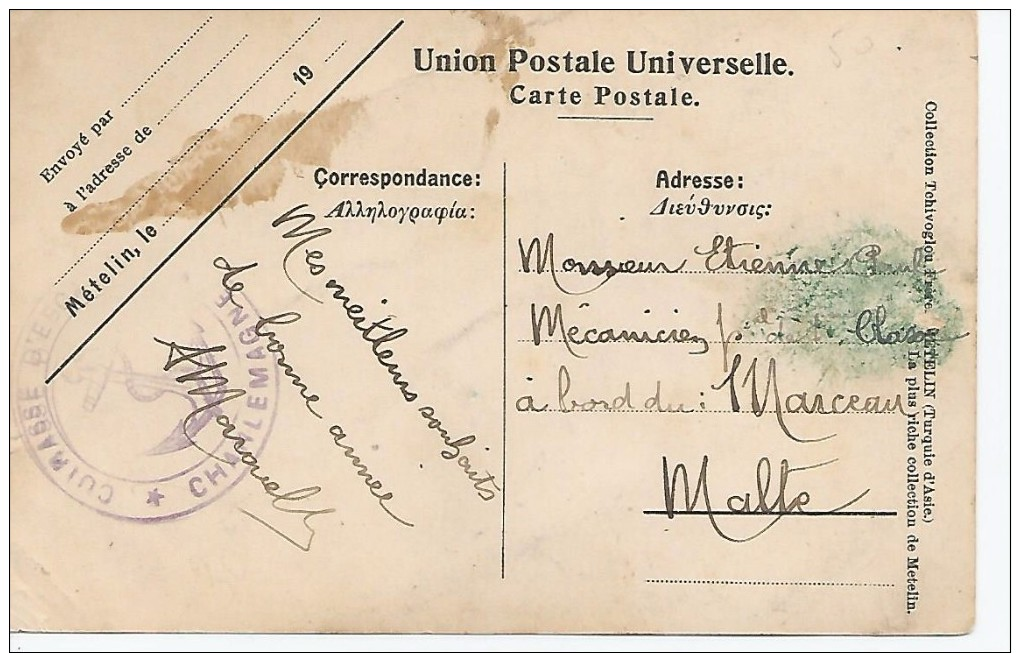 Union Postale Universelle.
Carte Postale.
Envoyé par
à l'adresse de
Mételin, le 19
Çorrespondance:
Ἀλληλογραφία:
Adresse:
Διεύθυνσις:
Mes meilleurs souhaits
de bonne année
Monsieur Etienne
Mécanicien
à bord du: Marceau
Malte
CUIRASSÉ D'ES
CHARLEMAGNE
Collection Tchivoglou Frère METELIN (Turquie d'Asie.)
La plus riche collection de Metelin.